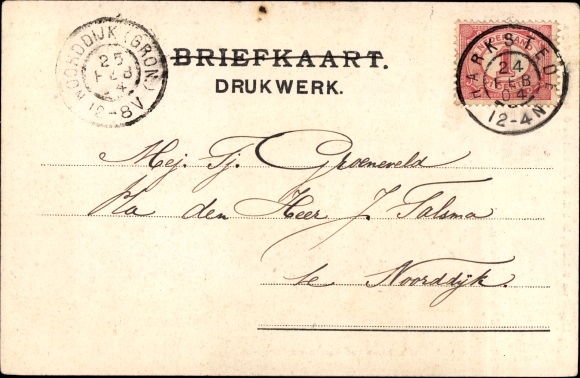 NOORDDIJK (GRON)
25
FEB
04
12-8V
BRIEFKAART.
DRUKWERK.
HARKSTEDE
24
FEB
04
12-4N
Mej. Tj. Groeneveld
P/a den Heer J. Talsma
te Noorddijk.